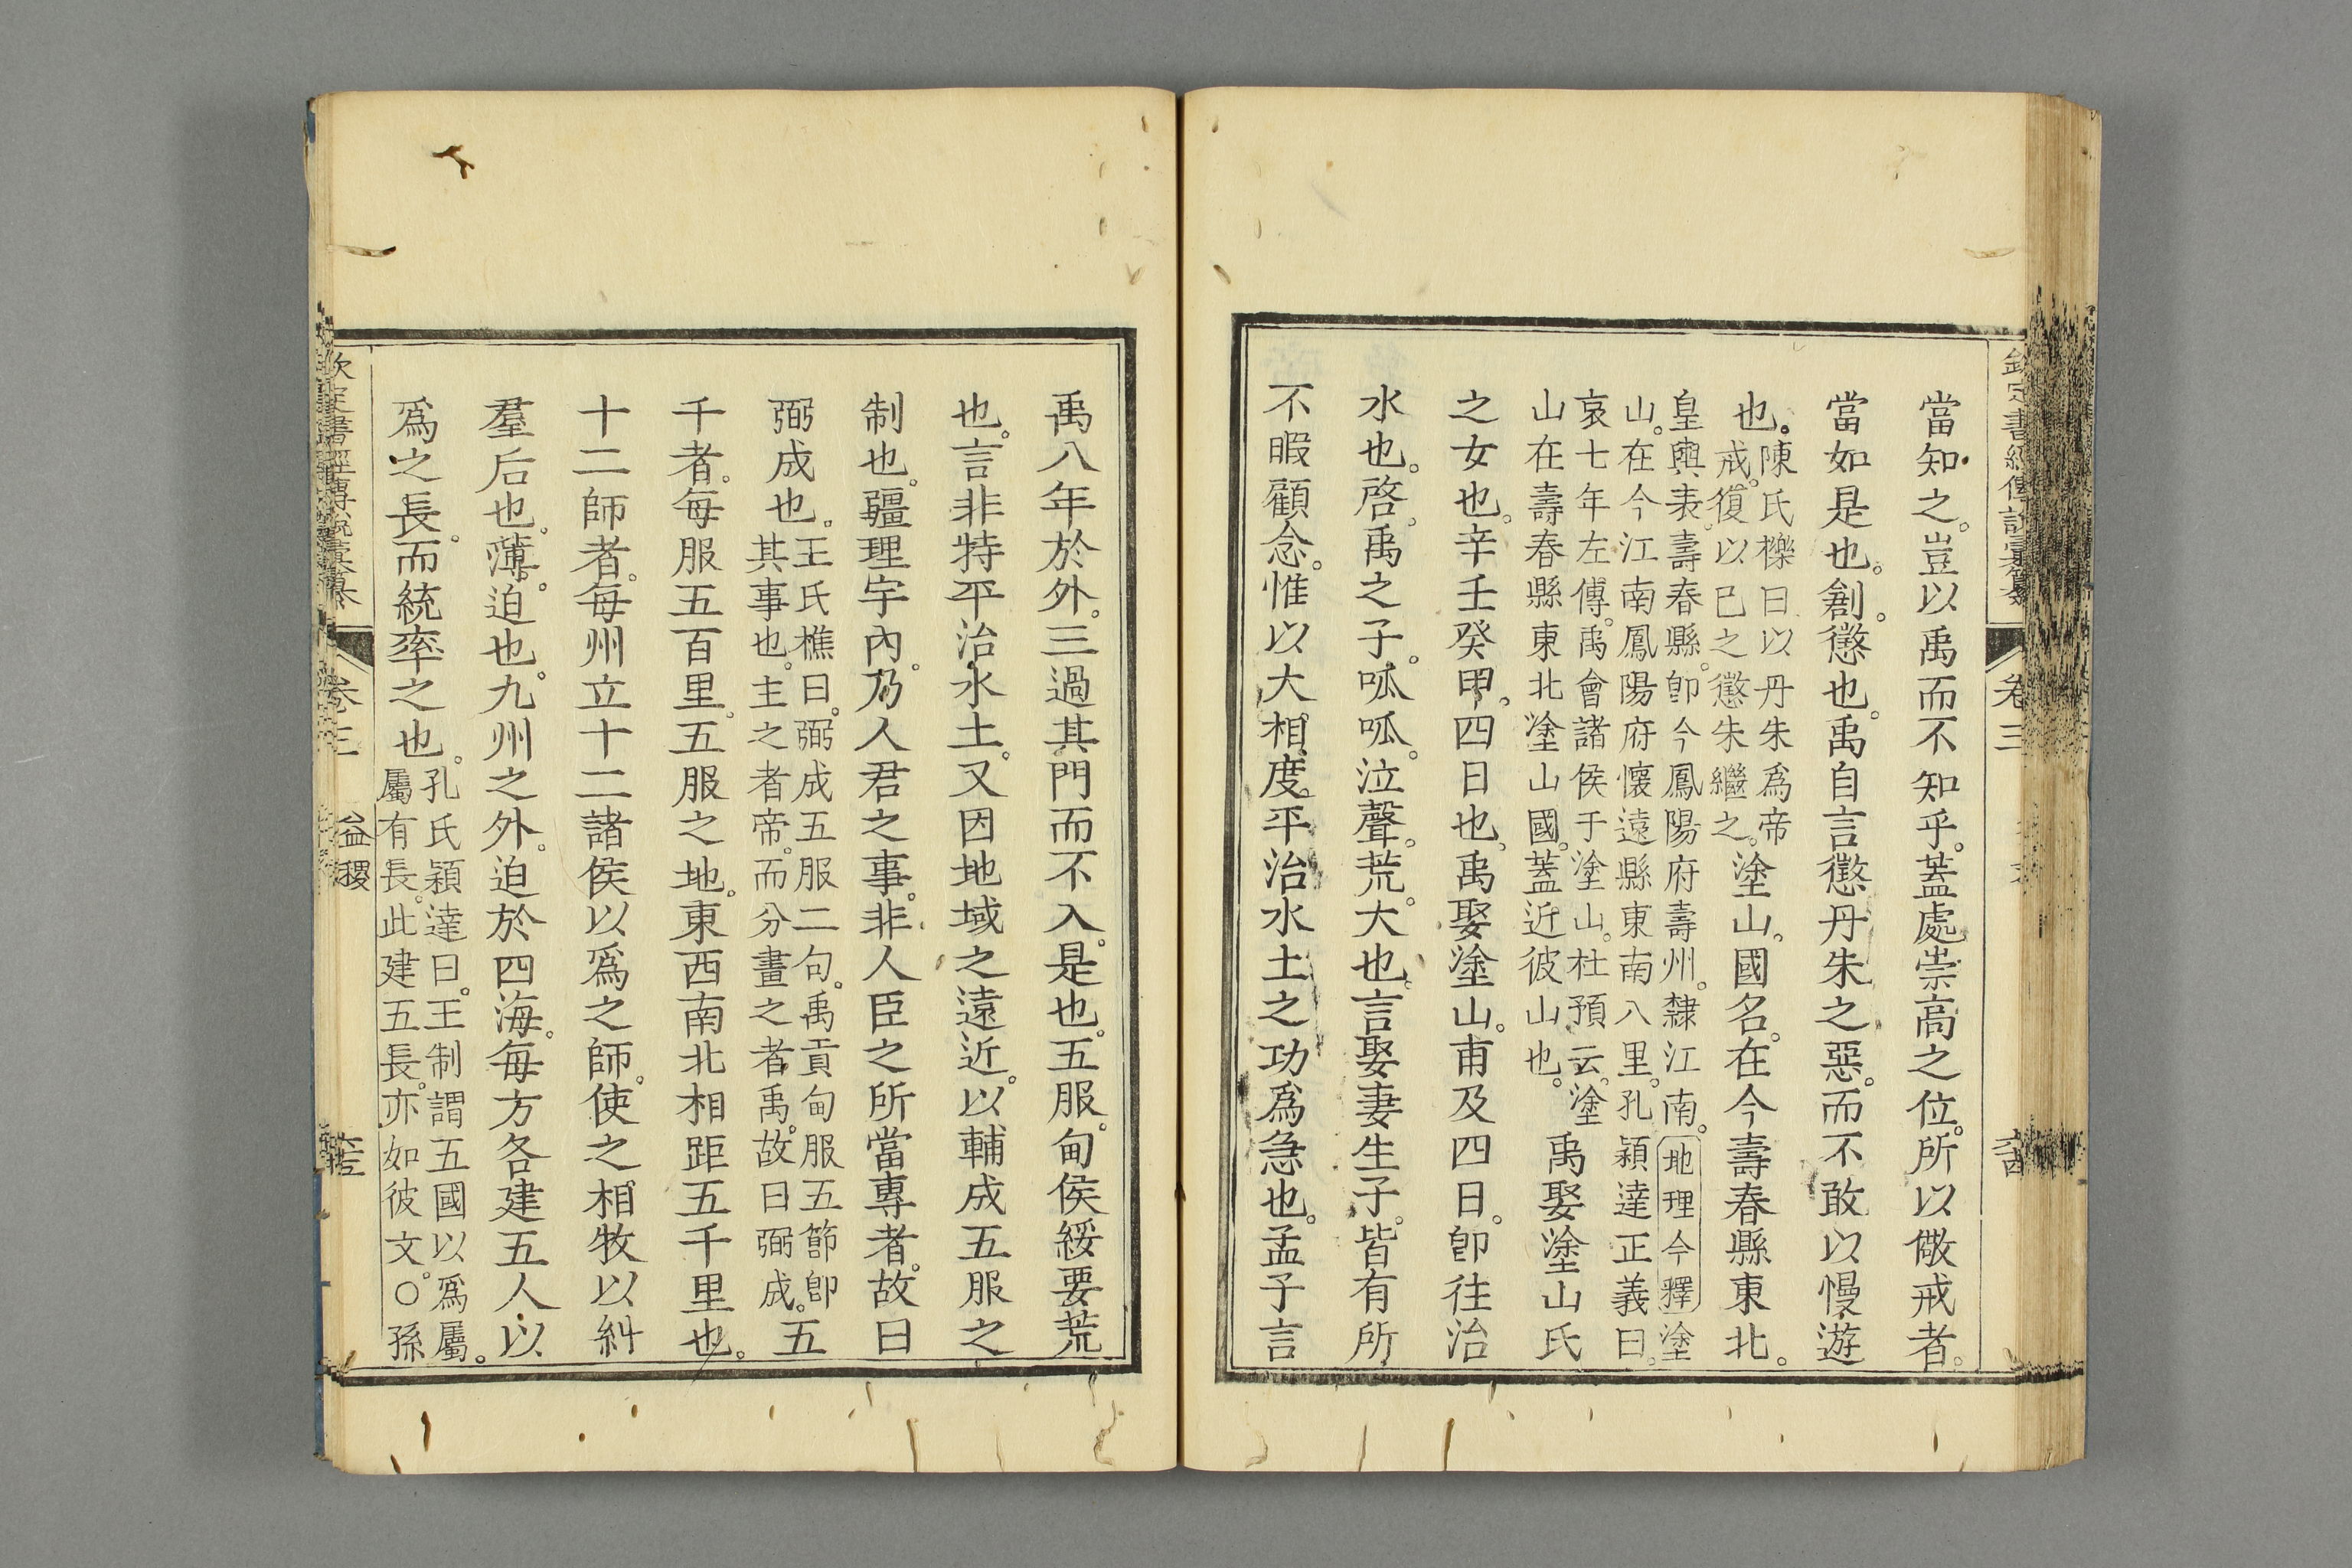 當知之。豈以禹而不知乎。蓋處崇高之位。所以儆戒者。
當如是也。創。懲也。禹自言懲丹朱之惡。而不敢以慢遊
也。陳氏櫟曰以丹朱為帝
戒。復以已之懲朱繼之。塗山。國名。在今壽春縣東北。
皇輿表。壽春縣。卽今鳳陽府壽州。隸江南。地理今釋塗
山。在今江南鳳陽府懷遠縣東南八里。孔穎達正義曰。
哀七年左傳。禹會諸侯于塗山。杜預云。塗
山在壽春縣東北塗山國。蓋近彼山也。禹娶塗山氏
之女也。辛壬癸甲。四日也。禹娶塗山。甫及四日。卽往治
水也。啓。禹之子。呱呱。泣聲。荒。大也。言娶妻生子。皆有所
不暇顧念。惟以大相度平治水土之功爲急也。孟子言
欽定書經傳說彙纂
卷三
禹八年於外。三過其門而不入。是也。五服。甸侯綏要荒
也。言非特平治水土。又因地域之遠近。以輔成五服之
制也。疆理宇內。乃人君之事。非人臣之所當專者。故曰
弼成也。王氏樵曰。弼成五服二句。禹貢甸服五節卽
其事也。主之者帝。而分畫之者禹。故曰弼成。五
千者。每服五百里。五服之地。東西南北相距五千里也。
十二師者。每州立十二諸侯以爲之師。使之相牧以糾
羣后也。薄。迫也。九州之外。迫於四海。每方各建五人。以
爲之長。而統率之也。孔氏穎達曰。王制謂五國以爲屬。
屬有長。此建五長。亦如彼文。○孫
卷三
益稷